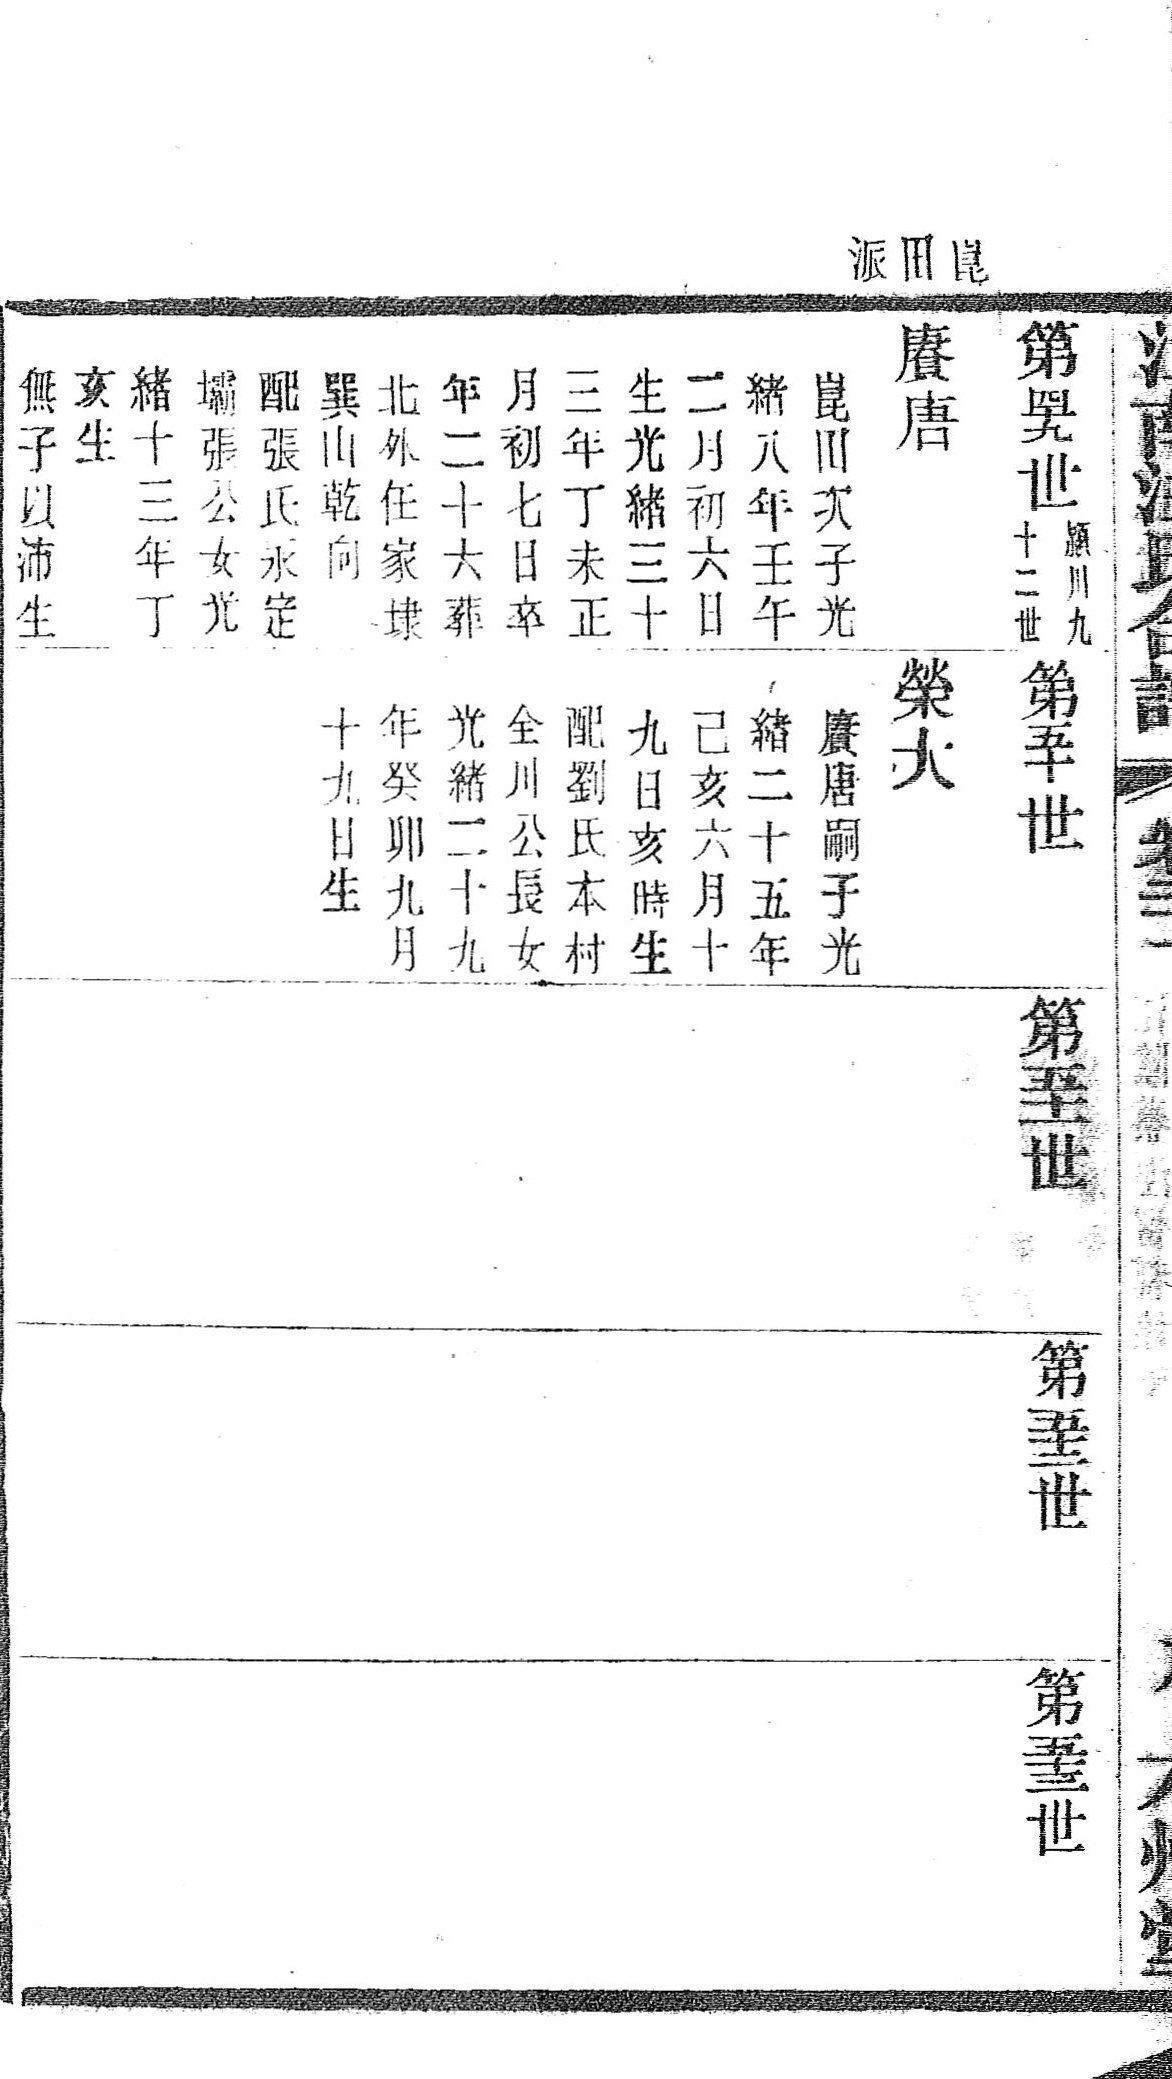 崑田派
第四九世
潁川九
十二世
賡唐
崑田次子光
緒八年壬午
二月初六日
生光緒三十
三年丁未正
月初七日卒
年二十六葬
北外任家埭
巽山乾向
配張氏永定
壩張公女光
緒十三年丁
亥生
無子以沛生
第五十世
榮火
賡唐嗣子光
緒二十五年
己亥六月十
九日亥時生
配劉氏本村
全川公長女
光緒二十九
年癸卯九月
十九日生
第五十一世
第五十二世
第五十三世